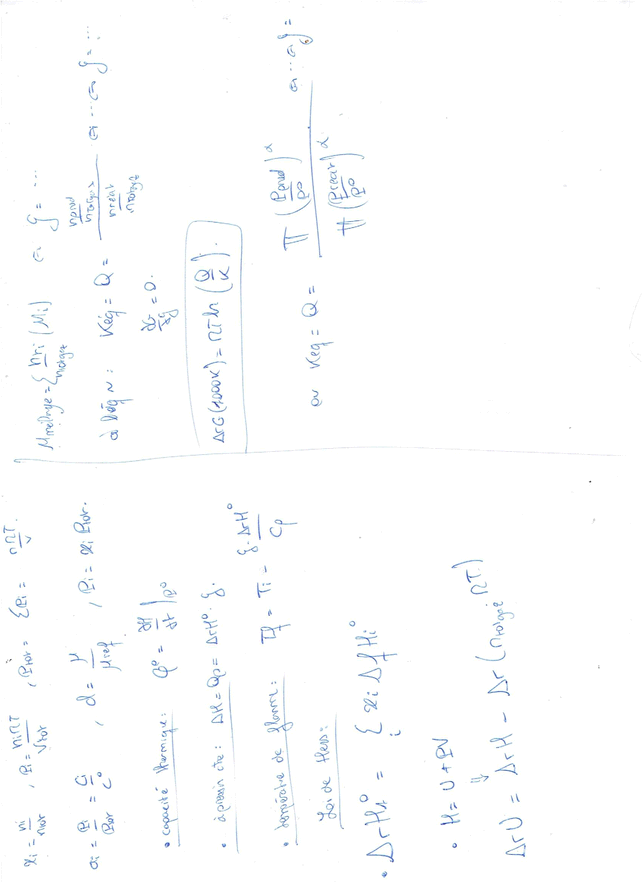 xi = ni/ntot , Pi = niRT/Vtot , Ptot = ΣPi = nRT/V
ai = Pi/Ptot = Ci/C° , d = μ/μref , Pi = xi Ptot.
• capacité thermique : Cp° = ∂H/∂t |P°
• à pression cte : ΔH = Qp = ΔrH° · ξ.
• température de flamme : Tf = Ti − ξ·ΔrH°/Cp
Loi de Hess :
• ΔrH° = Σi xi ΔfHi°
• H = U + PV
⇓
ΔrU = ΔrH − Δr(ntotgaz RT)
Mmélange = Σ nri/ntotgaz (Mi) ⇔ ξ = ...
à l'éq : Kéq = Q = (nprod/ntotgaz)/(nréact/ntotgaz) ⇔ ... ⇔ ξ = ...
∂G/∂ξ = 0.
ΔrG(1000K) = RT ln (Q/K).
ou Kéq = Q = Π (Pprod/P°)^α / Π (Préact/P°)^α ⇔ ... ⇔ ξ =